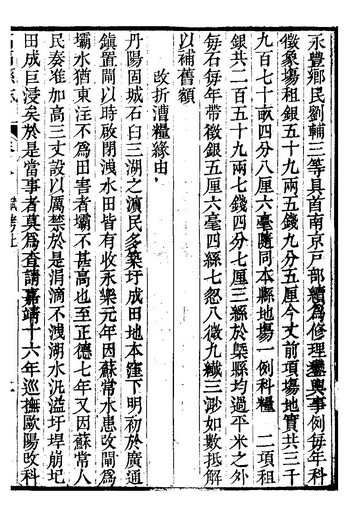 永豐鄉民劉輔三等具首南京戶部續為修理鑾輿事例每年科
徵象場租銀五十九兩五錢九分五厘今丈前項場地實共三千
九百七十畝四分八厘六毫隨同本縣地場一例科糧 二項租
銀共二百五十九兩七錢四分七厘三絲於槩縣均過平米之外
每石每年帶徵銀五厘六毫四絲七忽八微九纖三渺如數抵解
以補舊額
改折漕糧緣由
丹陽固城石臼三湖之濵民多築圩成田地本窪下明初於廣通
鎮置閘以時啟閉洩水田皆有收永樂元年因蘇常水患改閘為
壩水猶東注不為田害者壩不甚高也至正德七年又因蘇常人
民奏准加高三丈設以厲禁於是涓滴不洩湖水汎溢圩埂崩圮
田成巨浸矣於是當事者莫為查請嘉靖十六年巡撫歐陽改科